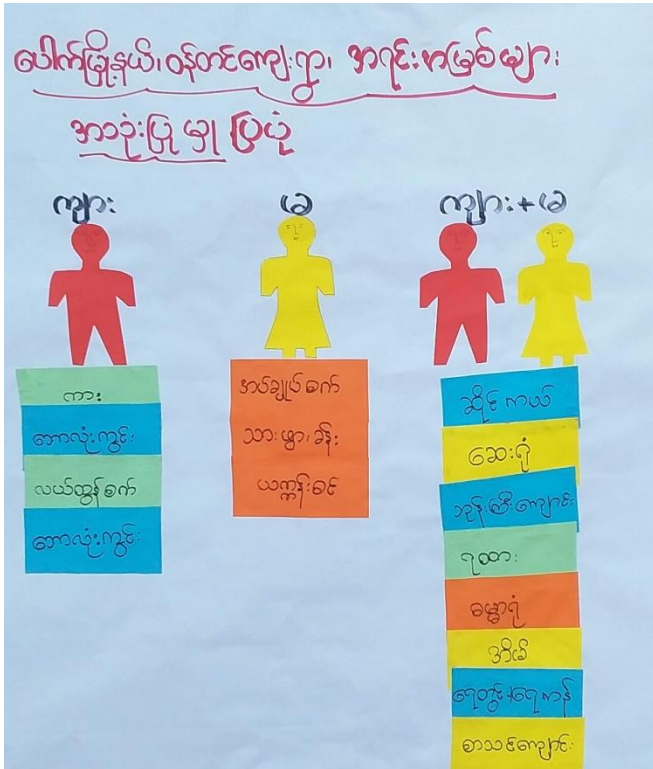 ပေါက်မြို့နယ်၊ ဝန်တင်ကျေးရွာ၊ အရင်းအမြစ်များ
အသုံးပြုမှု ပြပုံ
ကျား
မ
ကျား+မ
ကား
ဘောလုံးကွင်း
လယ်ထွန်စက်
ဘောလုံးကွင်း
အပ်ချုပ်စက်
သားဖွားခန်း
ယက္ကန်းစင်
ဆိုင်ကယ်
ဆေးရုံ
ဘုန်းကြီးကျောင်း
ရထား
ဓမ္မာရုံ
အိမ်
ရေတွင်း၊ရေကန်
စာသင်ကျောင်း